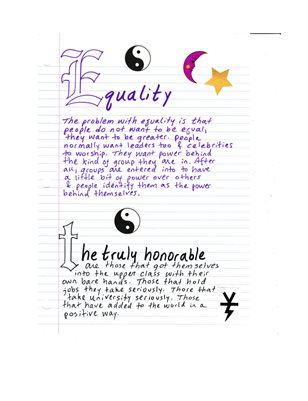 Equality
The problem with equality is that
people do not want to be equal,
they want to be greater. People
normally want leaders too & celebrities
to worship. They want power behind
the kind of group they are in. After
all, groups are entered into to have
a little bit of power over others
& people identify them as the power
behind themselves.
the truly honorable
are those that got themselves
into the upper class with their
own bare hands. Those that hold
jobs they take seriously. Those that
take university seriously. Those
that have added to the world in a
positive way.